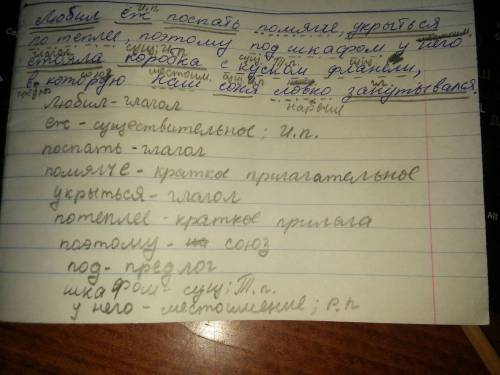 И.п.
Любил ёж поспать помягче, укрыться
потеплее, поэтому под шкафом у него
глагол сущ; И.п. сущ; Т.п.
стояла коробка с куском фланели,
предлог союз местоим.
в которую наш соня ловко закутывался.
наречие
Любил - глагол
ёж - существительное; И.п.
поспать - глагол
помягче - краткое прилагательное
укрыться - глагол
потеплее - краткое прилага
поэтому - союз
под - предлог
шкафом - сущ; Т.п.
у него - местоимение; Р.п